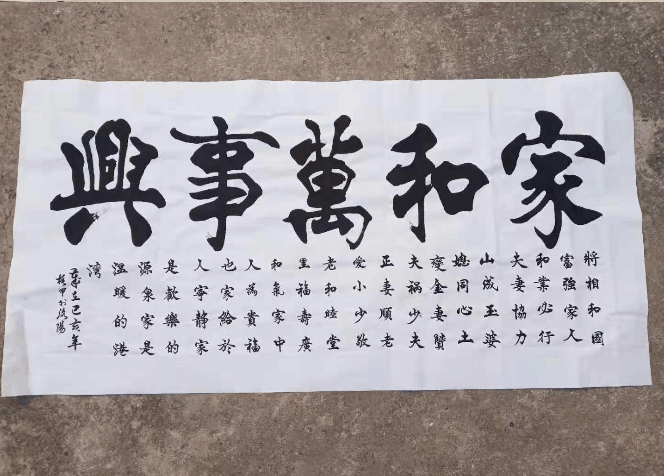 家和萬事興
將相和國
富強家人
和業必行
夫妻協力
山成玉婆
媳同心土
變金妻賢
夫禍少夫
正妻順老
愛小少敬
老和睦堂
里福壽廣
和氣家中
人為貴福
也家給於
人寧静家
是歡樂的
源泉家是
温暖的港
灣
己亥年